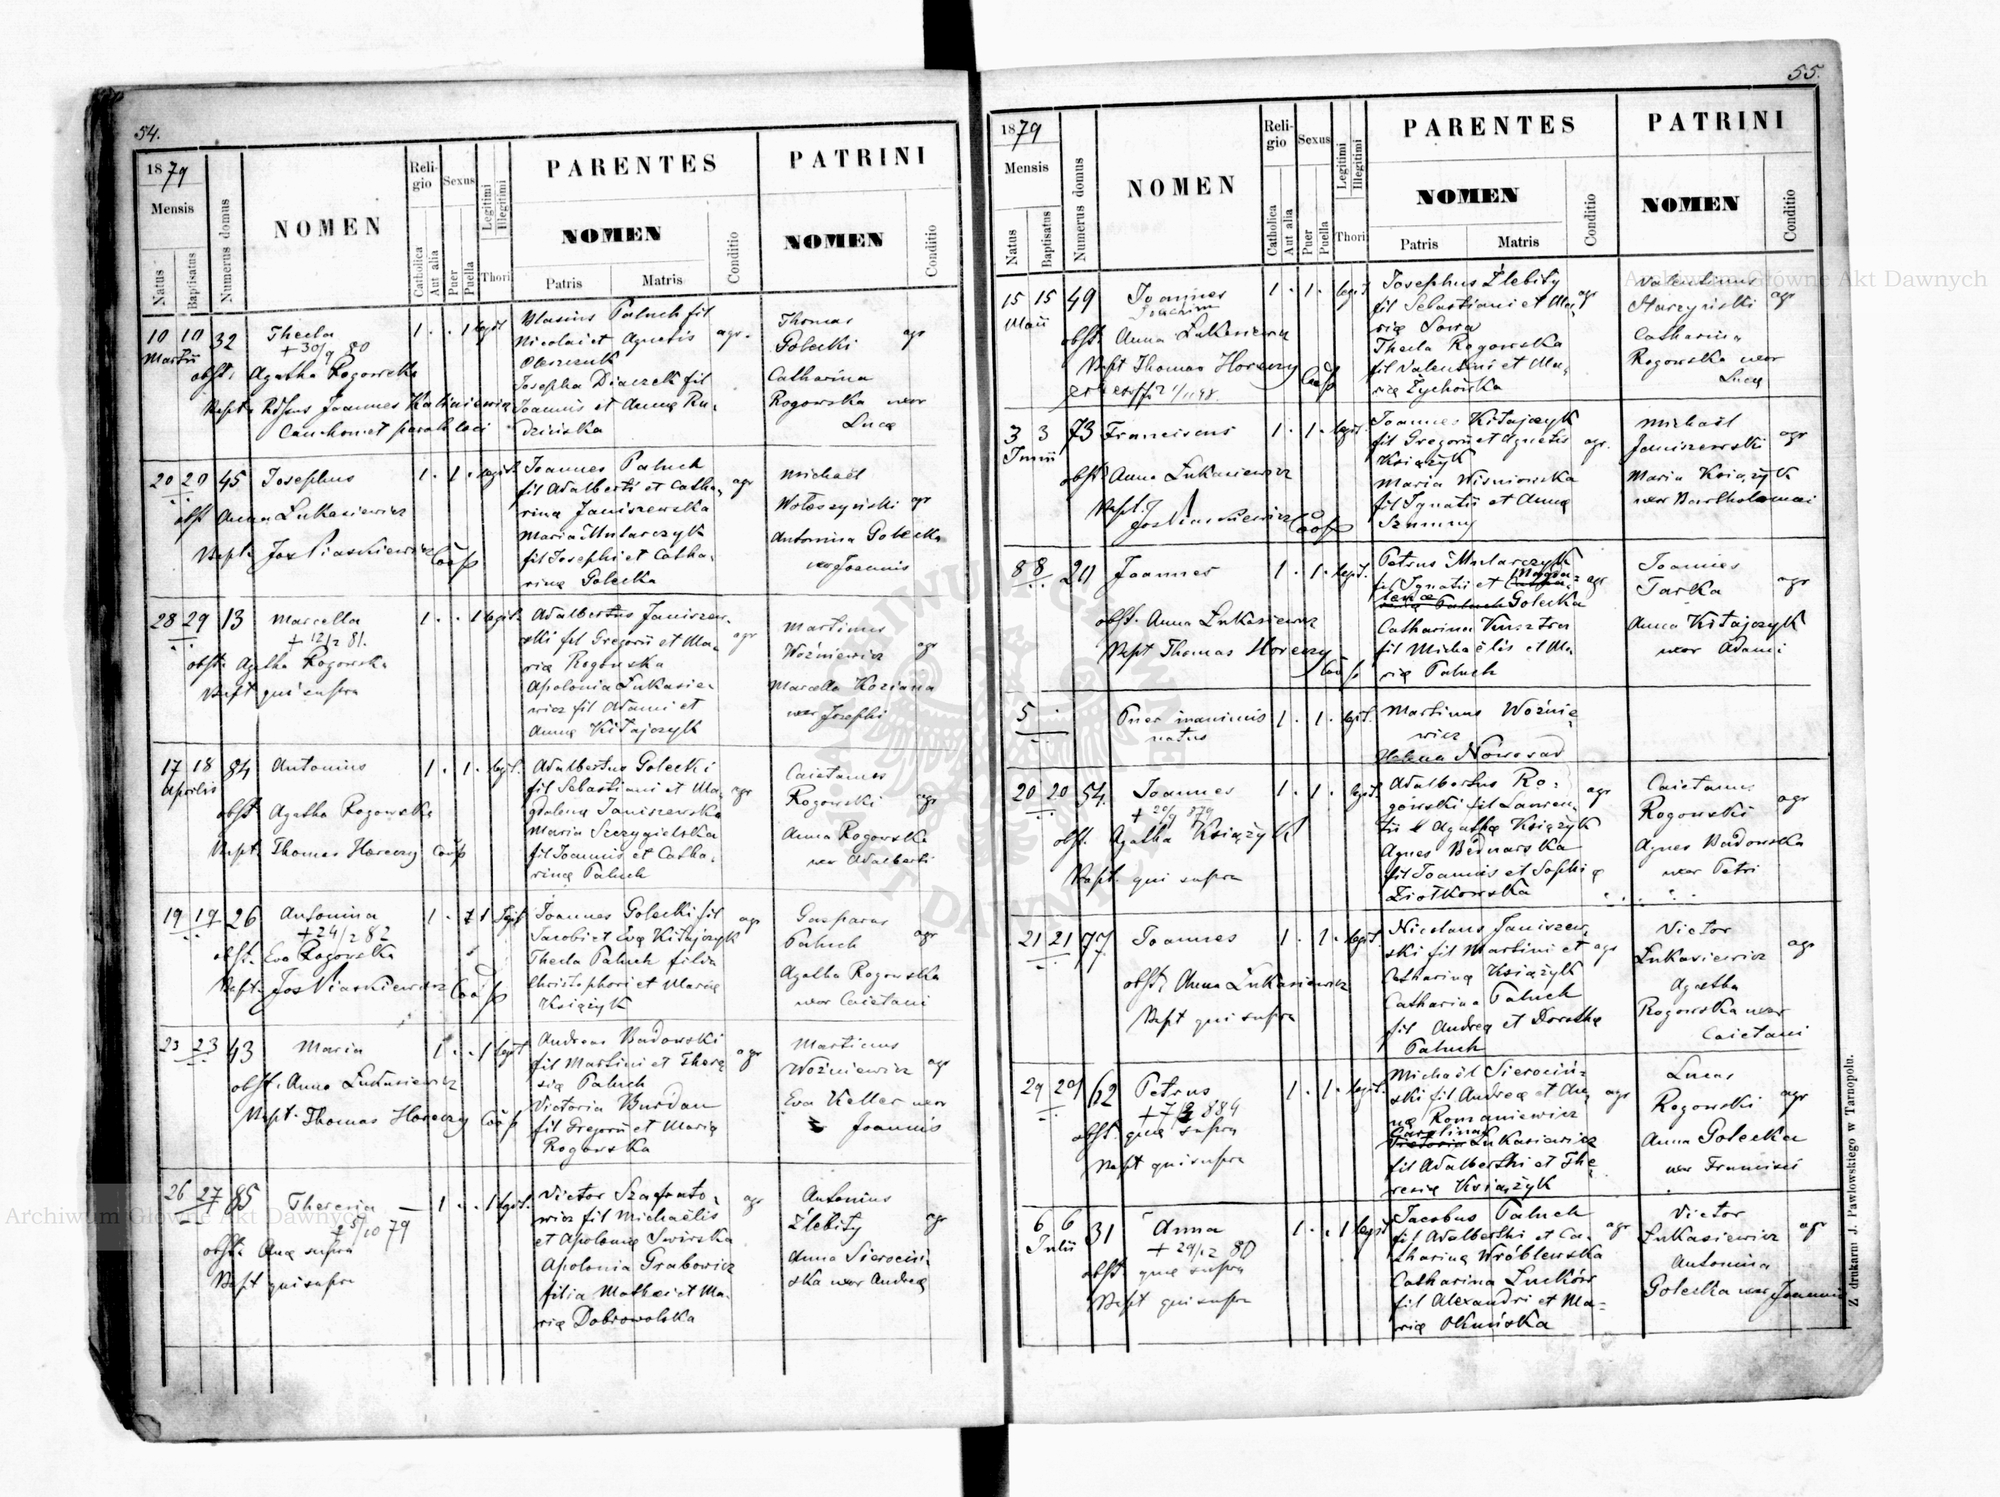 54.
1879
Mensis
Natus
Baptisatus
Numerus domus
NOMEN
Religio
Catholica
Aut alia
Sexus
Puer
Puella
Legitimi
Illegitimi
Thori
PARENTES
NOMEN
Patris
Matris
Conditio
PATRINI
NOMEN
Conditio
10 10 32 Thecla 1 . . 1 legit.
Martii
+ 30/9 80
obst. Agatha Rogowska
Bapt. Joannes
Blasius Paluch fil
Nicolai et Agnetis
Josepha fil
Joannis et Annae Ru-
dzińska
agr.
Thomas
Golecki
Catharina
Rogowska uxor
Lucae
agr
20 20 45 Josephus 1 . 1 . legit.
obst Anna Łukasiewicz
Bapt. Jos Piaskiewicz Coop
Joannes Paluch
fil Adalberti et Catha-
rinae Janiszewska
Maria Mularczyk
fil Josephi et Catha-
rinae Golecka
agr
Michaël
Wołoszyński
Antonina Golecka
uxor Joannis
agr
28 29 13 Marcella 1 . . 1 legit.
+ 12/2 81.
obst. Agatha Rogowska
Bapt qui supra
Adalbertus Janiszew-
ski fil Gregorii et Ma-
riae Rogowska
Apolonia Łukasie-
wicz fil Adami et
Annae Kitajczyk
agr
Martinus
Woźniewicz
Marcella Koziana
uxor Josephi
agr
17 18 84 Antonius 1 . 1 . legit.
Aprilis
obst. Agatha Rogowska
Bapt. Thomas Horeczy Coop
Adalbertus Golecki
fil Sebastiani et Ma-
gdalena Janiszewska
Maria Szczygielska
fil Joannis et Catha-
rinae Paluch
agr
Caietanus
Rogowski
Anna Rogowska
uxor Adalberti
agr
19 19 26 Antonina 1 . 1 legit
+ 24/2 82
obst. Eva Rogowska
Bapt. Jos Piaskiewicz Coop
Joannes Golecki fil
Jacobi et Eva Kitajczyk
Thecla Paluch filia
Christophori et Mariae
Książyk
agr
Gasparus
Paluch
Agatha Rogowska
uxor Caietani
agr
23 23 43 Maria 1 . . 1 legit
obst. Anna Łukasiewicz
Bapt. Thomas Horeczy Coop
Andreas Badowski
fil Martini et There-
siae Paluch
Victoria Burdan
fil Gregorii et Mariae
Rogowska
agr
Martinus
Woźniewicz
Eva Keller uxor
Joannis
agr
26 27 85 Theresia 1 . . 1 legit.
+ 25/10 79
obst. Quae supra
Bapt qui supra
Victor Szafranto-
wicz fil Michaëlis
et Apolonae Swirska
Apolonia Grabowicz
filia Mathaei et Ma-
riae Dobrowolska
agr
Antonius
Żlebity
Anna Sierociń-
ska uxor Andreae
agr
55.
1879
Mensis
Natus
Baptisatus
Numerus domus
NOMEN
Religio
Catholica
Aut alia
Sexus
Puer
Puella
Legitimi
Illegitimi
Thori
PARENTES
NOMEN
Patris
Matris
Conditio
PATRINI
NOMEN
Conditio
15 15 49 Joannes 1 . 1 . legit
Maii
Joachim
obst. Anna Łukasiewicz
Bapt Thomas Horeczy Coop
Josephus Żlebity
fil Sebastiani et Ma-
riae Sowa
Thecla Rogowska
fil Valentini et Ma-
riae Żychowska
agr
Valentinus
Catharina
Rogowska uxor
Lucae
agr
3 3 73 Franciscus 1 . 1 . legit.
Junii
obst. Anna Łukasiewicz
Bapt. Jos Piaskiewicz Coop
Joannes Kitajczyk
fil Gregorii et Agnetis
Książyk
Maria Wisniowska
fil Ignatii et Annae
Szumny
agr.
Michaël
Janiszewski
Maria Książyk
uxor Bartholomaei
agr
8 8 20 Joannes 1 . 1 . legit.
obst. Anna Łukasiewicz
Bapt Thomas Horeczy
Coop
Petrus Mularczyk
fil Ignatii et Magda-
lenae Golecka
Catharina Kusztra
fil Michaëlis et Ma-
riae Paluch
agr
Joannes
Tarka
Anna Kitajczyk
uxor Adami
agr
5 . Puer inanimis 1 . 1 . legit.
natus
Martinus Woźnie-
wicz
Helena Nowosad
20 20 54. Joannes 1 . 1 . legit.
+ 20/9 879
obst. Agatha Książyk
Bapt. qui supra
Adalbertus Ro-
gowski fil Lauren-
tii & Agathae Książyk
Agnes Bednarska
fil Joannis et Sophiae
Ziołkowska
agr
Caietanus
Rogowski
Agnes Badowska
uxor Petri
agr
21 21 77 Joannes 1 . 1 . legit.
obst. Anna Łukasiewicz
Bapt qui supra
Nicolaus Janiszew-
ski fil Martini et
Catharinae Książyk
Catharina Paluch
fil Andreae et Dorothae
Paluch
agr
Victor
Łukasiewicz
Agatha
Rogowska uxor
Caietani
agr
29 29 62 Petrus 1 . 1 . legit.
+ 7/2 884
obst. quae supra
Bapt qui supra
Michaël Sierociń-
ski fil Andreae et An-
nae Romaniewicz
Carolina
Victoria Łukasiewicz
fil Adalberthi et The-
resiae Książyk
agr
Lucas
Rogowski
Anna Golecka
uxor Francisci
agr
6 6 31 Anna 1 . . 1 legit
Julii
+ 29/12 80
obst. quae supra
Bapt qui supra
Jacobus Paluch
fil Adalberthi et Ca-
tharinae Wróblewska
Catharina Luków
fil Alexandri et Ma-
riae Okunska
agr
Victor
Łukasiewicz
Antonina
Golecka uxor Joannis
agr
Z drukarni J. Pawłowskiego w Tarnopolu.
Archiwum Główne Akt Dawnych
Archiwum Główne Akt Dawnych
ARCHIWUM GŁÓWNE AKT DAWNYCH